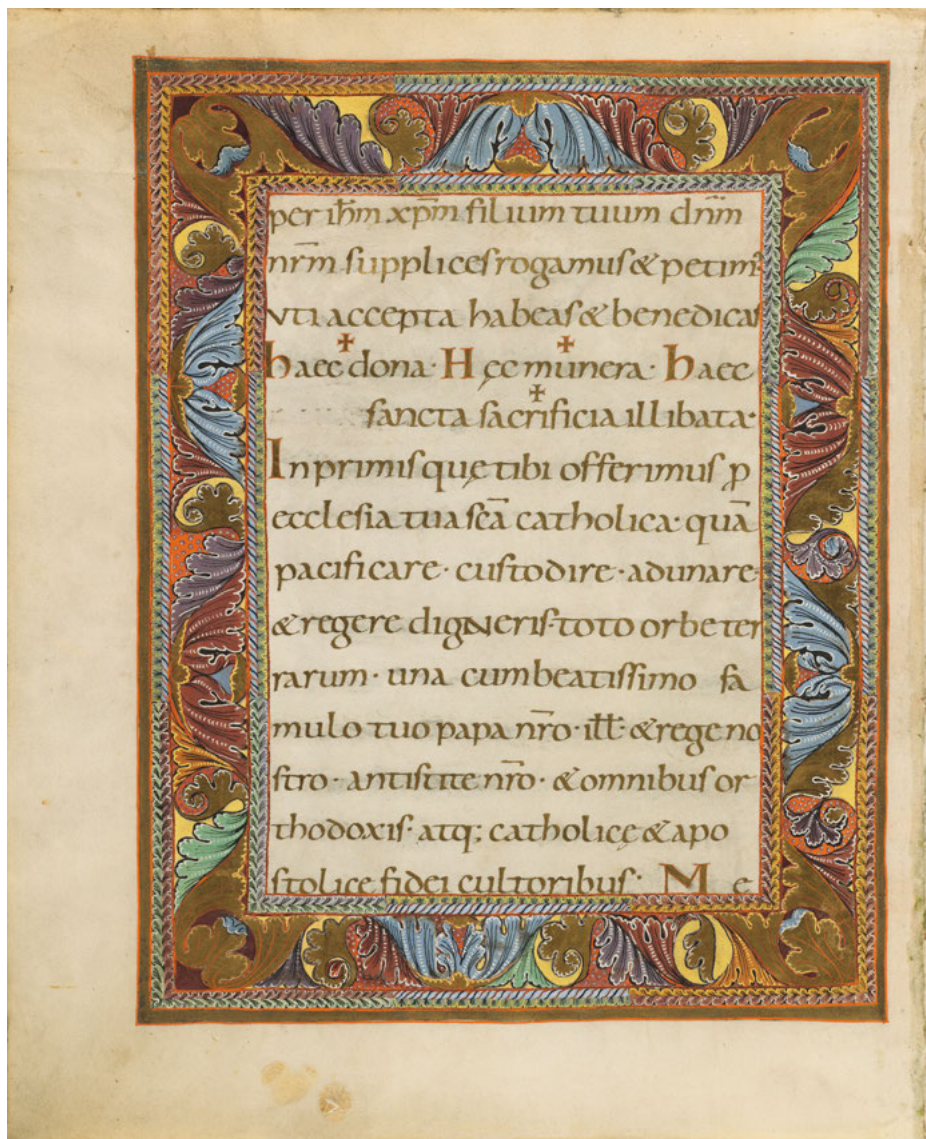 per ihm̄ xpm̄ filium tuum dnm̄
nrm̄ supplices rogamus & petim᾽
vti accepta habeas & benedicas
haec dona · Hęc munera · haec
sancta sacrificia illibata ·
In primis quę tibi offerimus ꝑ
ecclesia tua scā catholica · quā
pacificare · custodire · adunare ·
& regere digneris · toto orbe ter
rarum · una cum beatissimo fa
mulo tuo papa nr̄o · ill̄ · & rege no
stro · antistite nr̄o · & omnibus or
thodoxis · atq; catholicę & apo
stolice fidei cultoribus · Me